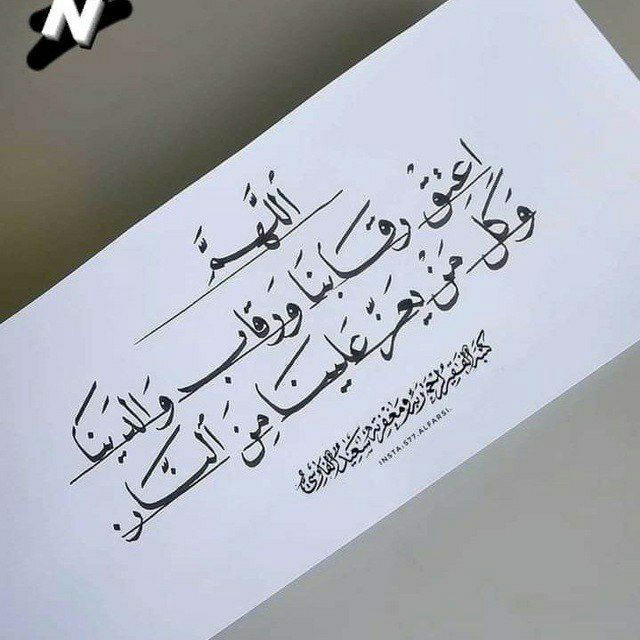 N
اَللَّهُمَّ
اعْتِقْ رِقَابَنَا وَرِقَاب وَالِدِينَا
وَكُلَ مَنْ يَعِزّ عَلَينَا مِنَ اَلنَّارِ
كتبه الفقير رحمة ربه ومغفرته سعيد الفارسي
INSTA:S77.ALFARSI.